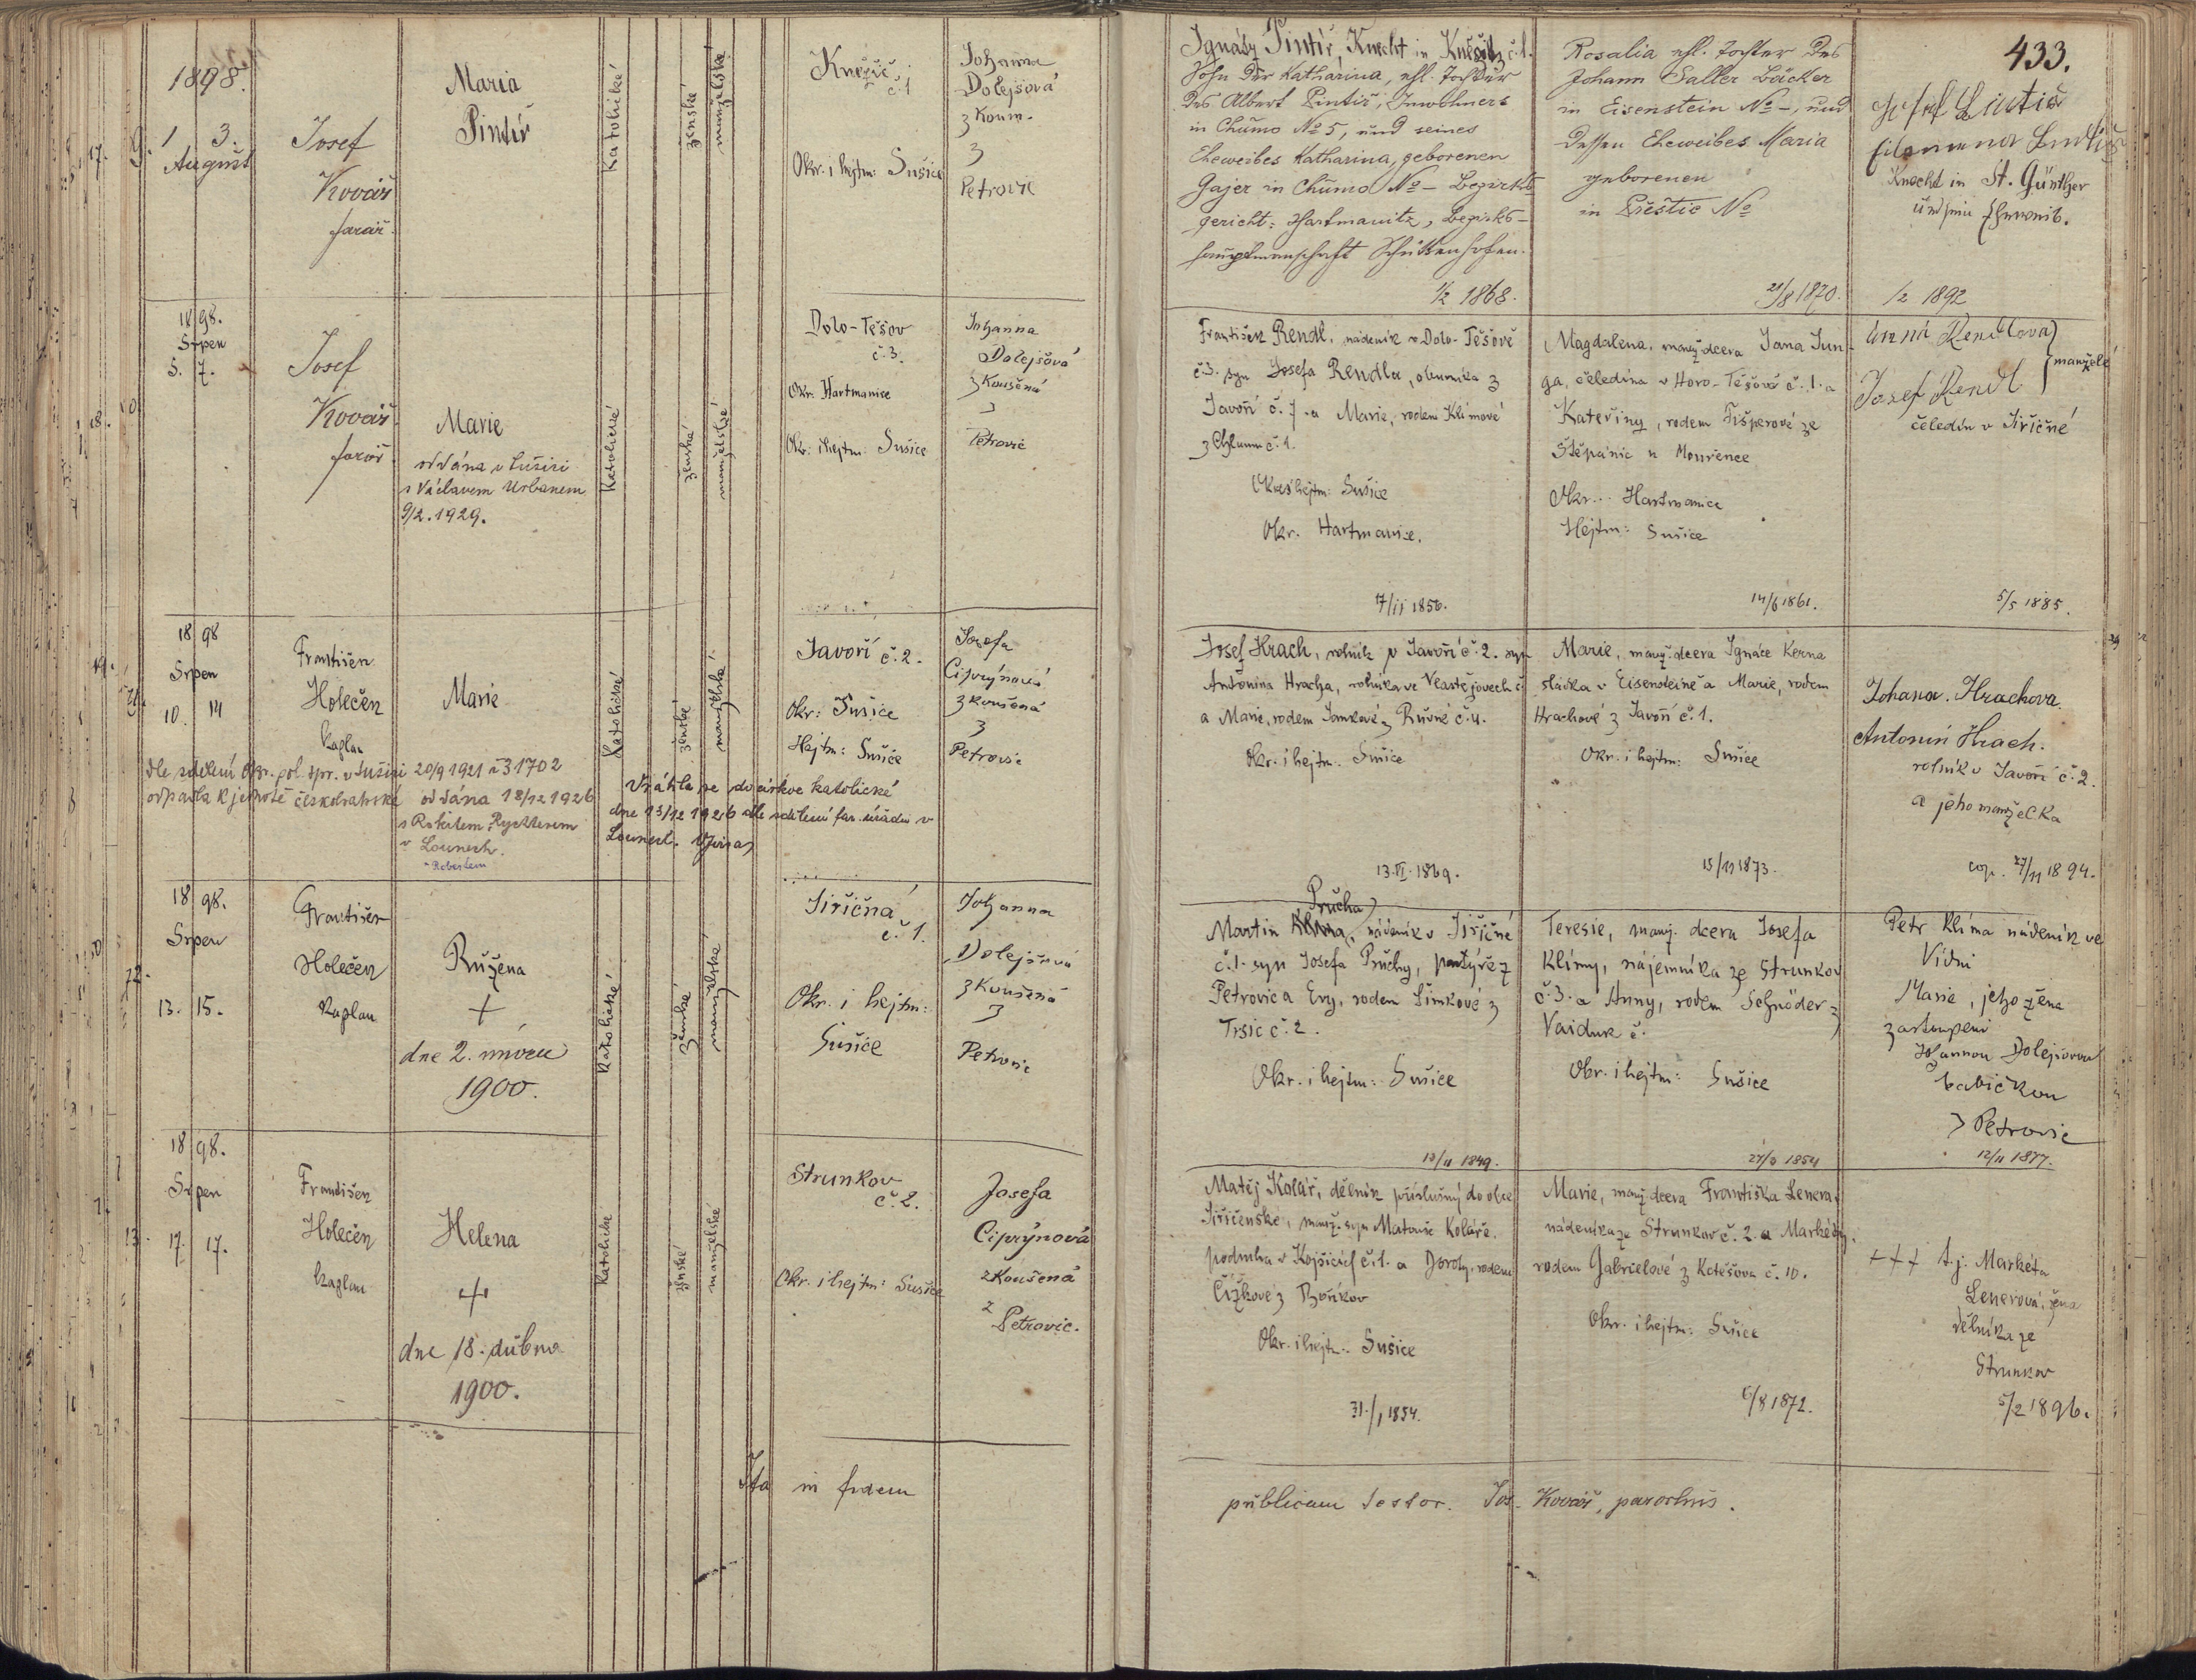 433.
1898.
1 3.
August
Josef
Kovář
farář.
Maria
Pintíř
Katolické
ženské
manželské
Kněžic
č. 1
Okr. i hejtm: Sušice
Johanna
Dolejšová
z Kouш.
z
Petrovic
Ignátz Pintíř, Knecht in Kněžitz č. 1.
Sohn der Katharina, ehl. Tochter
des Albert Pintíř, Inwohners
in Chumo No 5, und seines
Eheweibes Katharina, geborenen
Gajer in Chumo No – Bezirks
gericht: Hartmanitz, Bezirks-
hauptmannschaft Schüttenhofen.
1/2 1868.
Rosalia ehl. Tochter des
Johann Saller Bäcker
in Eisenstein No –, und
dessen Eheweibes Maria
geborenen
in Přeštic No
21/8 1870.
Josef Pintíř
filomena Pintíř
Knecht in St. Günther
und sein Eheweib.
1/2 1892
18 98.
Srpen
5. 7.
Josef
Kovář
farář.
Marie
oddána v Sušici
s Václavem Urbanem
9/2. 1929.
Katolické
ženské
manželské
Dolo-Těšov
č. 3.
Okr. Hartmanice
Okr. i hejtm: Sušice
Johanna
Dolejšová
z Koušená
z
Petrovic
František Rendl, nádeník v Dolo-Těšově
č. 3. syn Josefa Rendla, obecníka z
Javoří č. 7. a Marie, rodem Klímové
z Chlumu č. 1.
Okres hejtm: Sušice
Okr. Hartmanice.
17/11 1856.
Magdalena, manž. dcera Jana Jun-
ga, čeledína v Horo-Těšově č. 1. a
Kateřiny, rodem Fišperové ze
Štěpánic u Mouřence
Okr. Hartmanice
Hejtm: Sušice
14/6 1861.
Anna Rendlova
Josef Rendl
manželé
čeledín v Jiřičné
5/5 1885.
18 98
Srpen
10. 14
František
Holeček
kaplan
Marie
Katolické
ženské
manželské
Javoří č. 2.
Okr: Sušice
Hejtm: Sušice
Josefa
Ciprýnová
z Koušená
z
Petrovic
dle sdělení okr. pol. spr. v Sušici 20/9 1921 č 31702
odpadla k jednotě českobratrské
oddána 18/12 1926
s Rokitem Rychterem
v Lounech.
Robertem
Vrátila se do církve katolické
dne 13/12 1926 dle sdělení far. úřadu v
Lounech.
Josef Hrach, rolník v Javoří č. 2. syn
Antonína Hracha, rolníka ve Vlastějovech č
a Marie, rodem Jankové z Rušné č. 4.
Okr. i hejtm. Sušice
13. VI. 1869.
Marie, manž. dcera Ignáce Kerna
sládka v Eisensteině a Marie, rodem
Hrachové z Javoří č. 1.
Okr. i hejtm: Sušice
15/11 1873.
Johana. Hrachova.
Antonín Hrach.
rolník v Javoří č. 2.
a jeho manželka
cop. 27/11 1894.
18 98.
Srpen
13. 15.
František
Holeček
kaplan
Růžena
+
dne 2. února
1900.
Katolické
ženské
manželské
Jiřičná
č. 1.
Okr. i hejtm:
Sušice
Johanna
Dolejšová
z Koušená
z
Petrovic
Průcha
Martin Klíma, nádeník v Jiřičné
č. 1. syn Josefa Průchy, pastýře z
Petrovic a Evy, rodem Šimkové z
Tršic č. 2.
Okr. i hejtm: Sušice
12/11 1849.
Teresie, manž. dcera Josefa
Klímy, nájemníka ze Strunkov
č. 3. a Anny, rodem Schnöder z
Vaiduk č.
Okr. i hejtm: Sušice
27/3 1854
Petr Klíma nádeník ve
Vídni
Marie, jeho žena
zastoupeni
Johannou Dolejšovou
babičkou
z Petrovic
12/11 1877.
18 98.
Srpen
17. 17.
František
Holeček
kaplan
Helena
+
dne 18. dubna
1900.
Katolické
ženské
manželské
Strunkov
č. 2.
Okr. i hejtm: Sušice
Josefa
Ciprýnová
z Koušená
z
Petrovic.
Matěj Kolář, dělník příslušný do obce
Jiřičenské, manž. syn Matouše Koláře,
podruha v Kojšicích č. 1. a Doroty, rodem
Čížkové z
Okr. i hejtm: Sušice
31./1 1854.
Marie, manž. dcera Františka Lenera,
nádeníka ze Strunkov č. 2. a Markéty,
rodem Gabrielové z Kotěšova č. 10.
Okr. i hejtm: Sušice
6/8 1872.
+++ t. j. Markéta
Lenerová, žena
dělníka ze
Strunkov
5/2 1896.
Ita in fidem
publicam testor. Jos. Kovář, parochus.